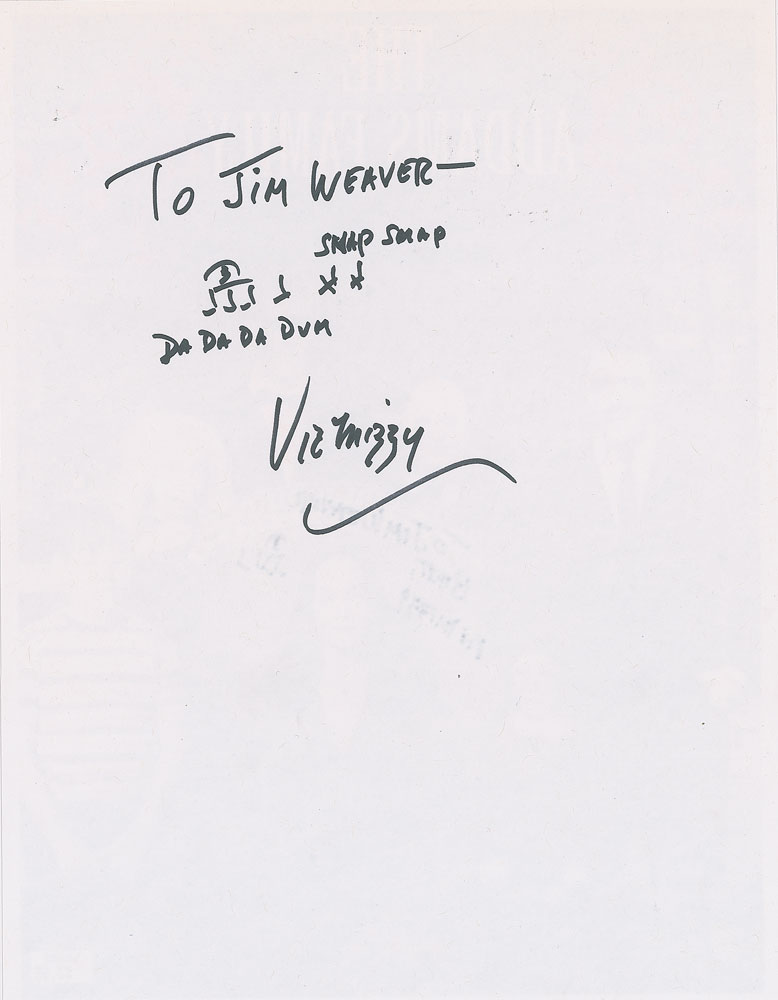 To Jim WEAVER—
SNAP SNAP
3
DA DA DA DUM
Vic Mizzy